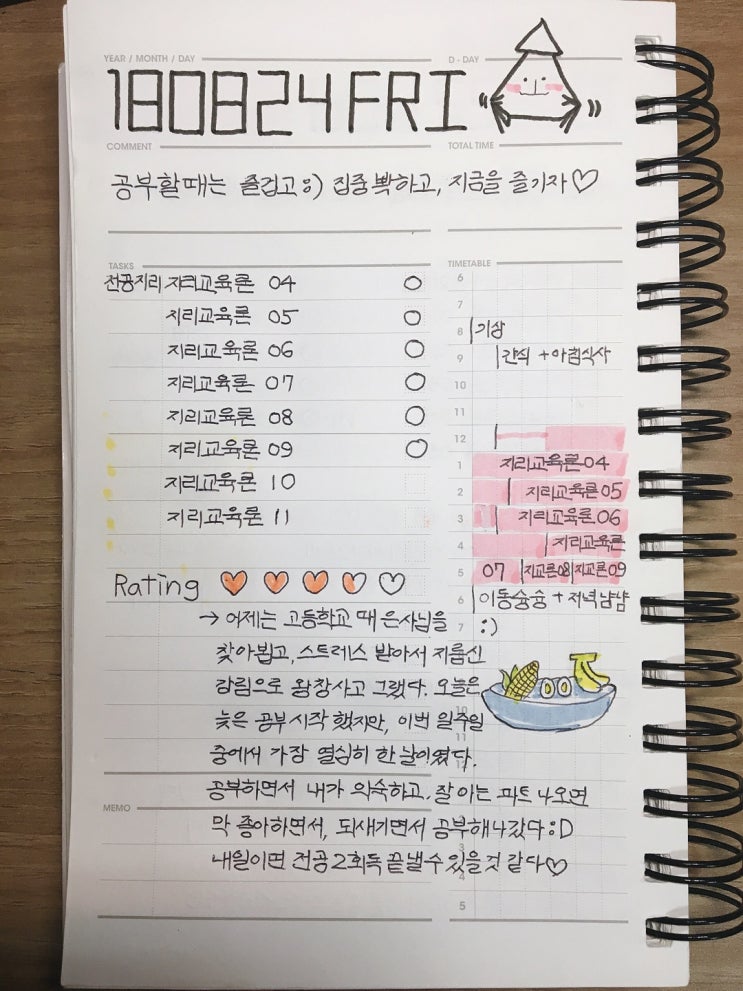 YEAR / MONTH / DAY
D - DAY
180824 FRI
COMMENT
TOTAL TIME
공부할때는 즐겁고:) 집중 빡하고, 지금을 즐기자♡
TASKS
전공지리 지리교육론 04 ○
지리교육론 05 ○
지리교육론 06 ○
지리교육론 07 ○
지리교육론 08 ○
지리교육론 09 ○
지리교육론 10
지리교육론 11
TIMETABLE
6
7
8 기상
9 간식 +아침식사
10
11
12
1 지리교육론04
2 지리교육론05
3 지리교육론06
4 지리교육론
5 07 지교론08 지교론09
6 이동슝슝 + 저녁냠냠
7 :)
Rating
→ 어제는 고등학교 때 은사님을
찾아뵙고, 스트레스 받아서 지름신
강림으로 왕창사고 그랬다. 오늘은
늦은 공부시작 했지만, 이번 일주일
중에서 가장 열심히 한 날이였다.
공부하면서 내가 익숙하고, 잘 아는 파트 나오면
막 좋아하면서, 되새기면서 공부해나갔다:D
내일이면 전공2회독 끝낼수 있을것 같다♡
10
11
12
MEMO
3
4
5